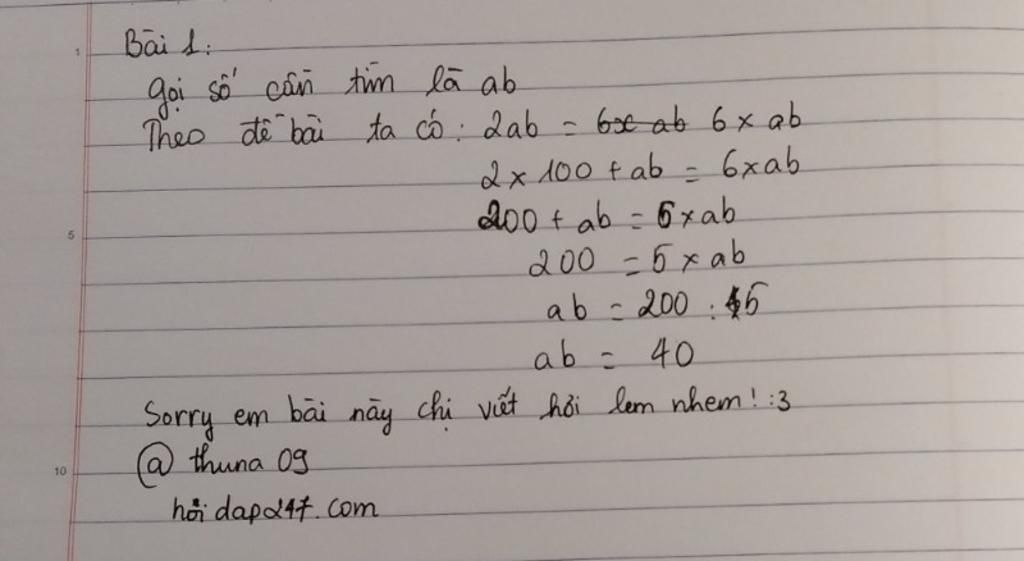 Bài 1:
Gọi số cần tìm là ab
Theo đề bài ta có: 2ab = 6x ab 6 x ab
2 x 100 + ab = 6 x ab
200 + ab = 6 x ab
200 = 5 x ab
ab = 200 : 5
ab = 40
Sorry em bài này chị viết hơi lem nhem! :3
@ thuna 09
hỏi dap247.com
1
5
10